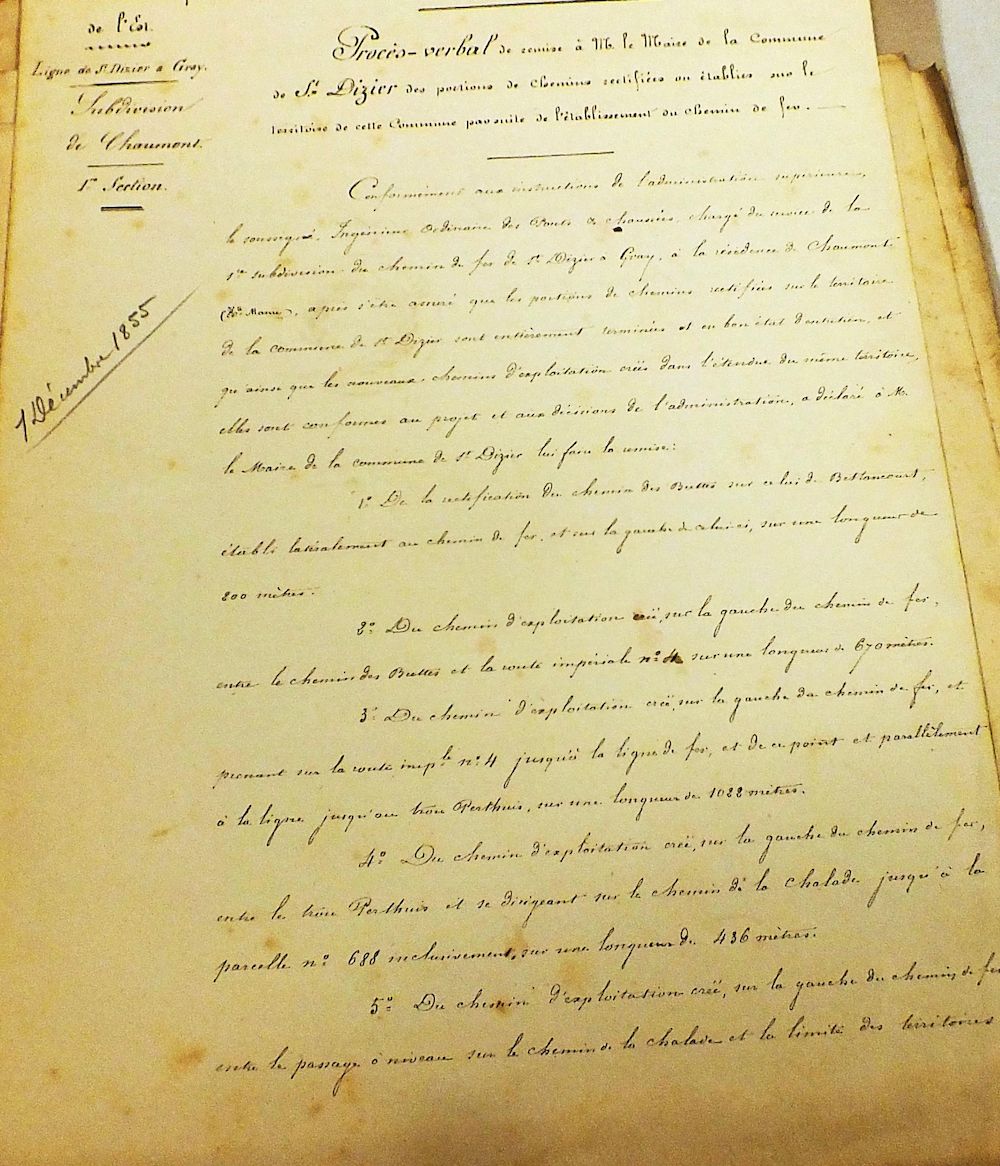 de l'Est.
Ligne de St. Dizier à Gray.
Subdivision
de Chaumont.
1re Section.
7 Décembre 1855
Procès-verbal de remise à M. le Maire de la Commune
de St. Dizier des portions de chemins rectifiées ou établies sur le
territoire de cette Commune par suite de l'établissement du chemin de fer.
Conformément aux instructions de l'administration supérieure,
le soussigné, Ingénieur Ordinaire des Ponts & chaussées, chargé du service de la
1re subdivision du chemin de fer de St. Dizier à Gray, à la résidence de Chaumont
(Hte Marne), après s'être assuré que les portions de chemins rectifiées sur le territoire
de la commune de St. Dizier sont entièrement terminées et en bon état d'entretien, et
qu'ainsi que les nouveaux chemins d'exploitation créés dans l'étendue du même territoire,
elles sont conformes au projet et aux décisions de l'administration, a déclaré à M.
le Maire de la commune de St. Dizier lui faire la remise:
1o De la rectification du chemin des Buttes sur celui de Bettancourt,
établi latéralement au chemin de fer, et sur la gauche de celui-ci, sur une longueur de
200 mètres.
2o Du chemin d'exploitation créé, sur la gauche du chemin de fer,
entre le chemin des Buttes et la route impériale no 4 sur une longueur de 670 mètres.
3o Du chemin d'exploitation créé, sur la gauche du chemin de fer, et
prenant sur la route imple no 4 jusqu'à la ligne de fer, et de ce point et parallèlement
à la ligne jusqu'au trou Perthuis, sur une longueur de 1022 mètres.
4o Du chemin d'exploitation créé, sur la gauche du chemin de fer,
entre le trou Perthuis et se dirigeant sur le chemin de la Chalade jusqu'à la
parcelle no 688 inclusivement, sur une longueur de 436 mètres.
5o Du chemin d'exploitation créé, sur la gauche du chemin de fer
entre le passage à niveau sur le chemin de la chalade et la limite des territoires